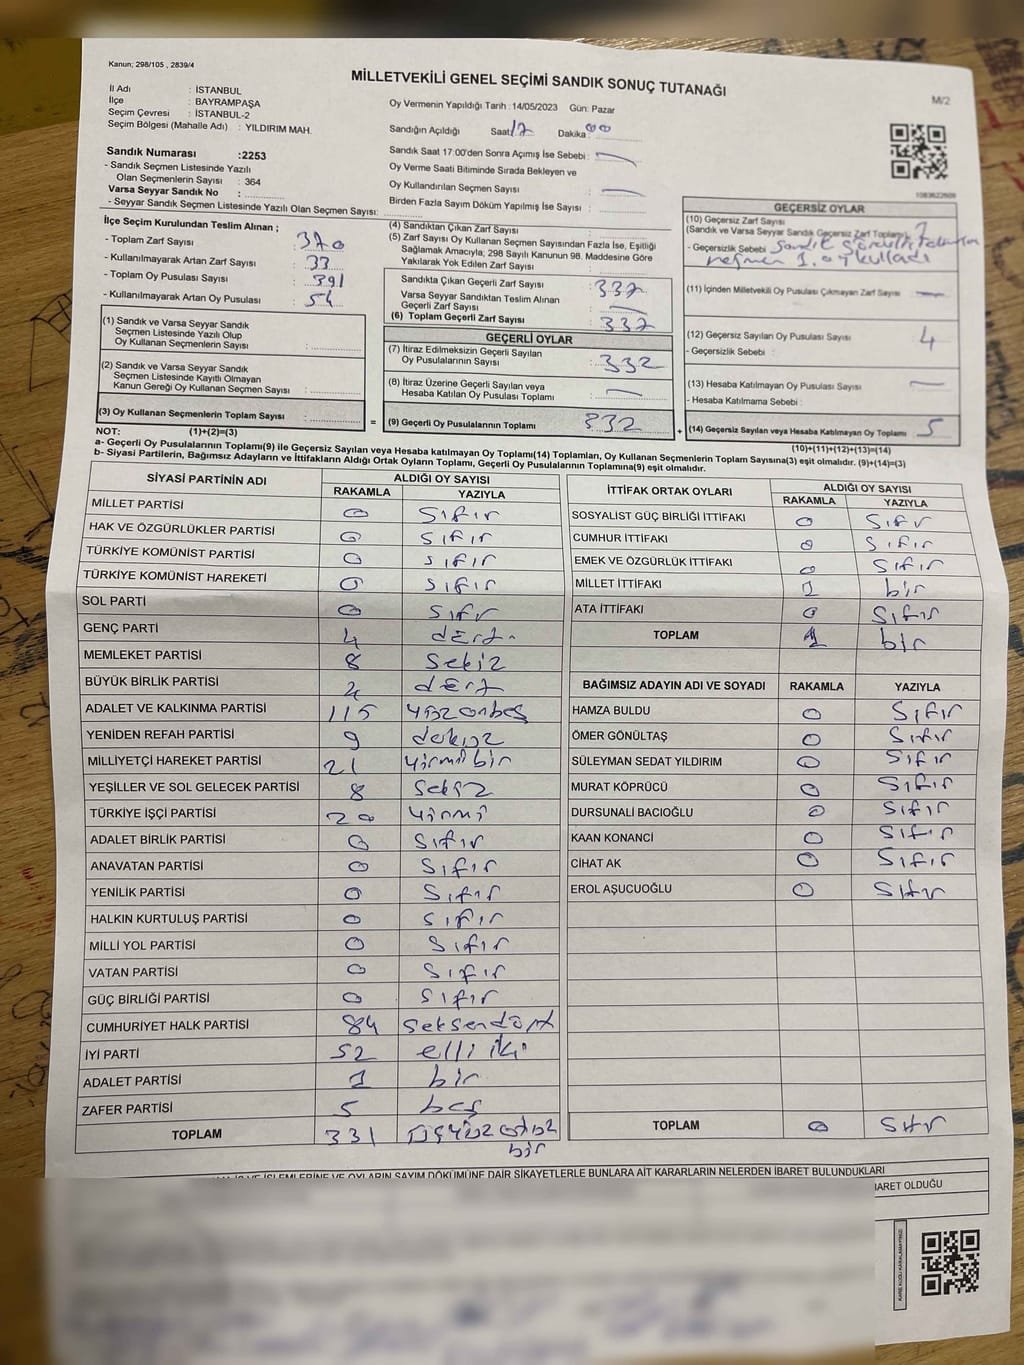 Kanun; 298/105 , 2839/4
MİLLETVEKİLİ GENEL SEÇİMİ SANDIK SONUÇ TUTANAĞI
M/2
İl Adı : İSTANBUL
İlçe : BAYRAMPAŞA
Seçim Çevresi : İSTANBUL-2
Seçim Bölgesi (Mahalle Adı) : YILDIRIM MAH.
Sandık Numarası :2253
- Sandık Seçmen Listesinde Yazılı
Olan Seçmenlerin Sayısı : 364
Varsa Seyyar Sandık No :
- Seyyar Sandık Seçmen Listesinde Yazılı Olan Seçmen Sayısı:
Oy Vermenin Yapıldığı Tarih :14/05/2023 Gün: Pazar
Sandığın Açıldığı Saat: 17 Dakika: 00
Sandık Saat 17:00'den Sonra Açımış İse Sebebi :
Oy Verme Saati Bitiminde Sırada Bekleyen ve
Oy Kullandırılan Seçmen Sayısı :
Birden Fazla Sayım Döküm Yapılmış İse Sayısı :
1083622609
İlçe Seçim Kurulundan Teslim Alınan ;
- Toplam Zarf Sayısı : 370
- Kullanılmayarak Artan Zarf Sayısı : 33
- Toplam Oy Pusulası Sayısı : 391
- Kullanılmayarak Artan Oy Pusulası : 54
(1) Sandık ve Varsa Seyyar Sandık
Seçmen Listesinde Yazılı Olup
Oy Kullanan Seçmenlerin Sayısı :
(2) Sandık ve Varsa Seyyar Sandık
Seçmen Listesinde Kayıtlı Olmayan
Kanun Gereği Oy Kullanan Seçmen Sayısı :
(3) Oy Kullanan Seçmenlerin Toplam Sayısı : =
(4) Sandıktan Çıkan Zarf Sayısı :
(5) Zarf Sayısı Oy Kullanan Seçmen Sayısından Fazla İse, Eşitliği
Sağlamak Amacıyla; 298 Sayılı Kanunun 98. Maddesine Göre
Yakılarak Yok Edilen Zarf Sayısı :
Sandıkta Çıkan Geçerli Zarf Sayısı : 337
Varsa Seyyar Sandıktan Teslim Alınan
Geçerli Zarf Sayısı :
(6) Toplam Geçerli Zarf Sayısı : 337
GEÇERLİ OYLAR
(7) İtiraz Edilmeksizin Geçerli Sayılan
Oy Pusulalarının Sayısı : 332
(8) İtiraz Üzerine Geçerli Sayılan veya
Hesaba Katılan Oy Pusulası Toplamı :
(9) Geçerli Oy Pusulalarının Toplamı : 332 +
GEÇERSİZ OYLAR
(10) Geçersiz Zarf Sayısı
(Sandık ve Varsa Seyyar Sandık Geçersiz Zarf Toplamı) :
- Geçersizlik Sebebi : Sandık
1. oy kulladı
(11) İçinden Milletvekili Oy Pusulası Çıkmayan Zarf Sayısı :
(12) Geçersiz Sayılan Oy Pusulası Sayısı : 4
- Geçersizlik Sebebi :
(13) Hesaba Katılmayan Oy Pusulası Sayısı :
- Hesaba Katılmama Sebebi :
(14) Geçersiz Sayılan veya Hesaba Katılmayan Oy Toplamı : 5
NOT: (1)+(2)=(3)
(10)+(11)+(12)+(13)=(14)
a- Geçerli Oy Pusulalarının Toplamı(9) ile Geçersiz Sayılan veya Hesaba katılmayan Oy Toplamı(14) Toplamları, Oy Kullanan Seçmenlerin Toplam Sayısına(3) eşit olmalıdır. (9)+(14)=(3)
b- Siyasi Partilerin, Bağımsız Adayların ve İttifakların Aldığı Ortak Oyların Toplamı, Geçerli Oy Pusulalarının Toplamına(9) eşit olmalıdır.
SİYASİ PARTİNİN ADI ALDIĞI OY SAYISI
RAKAMLA YAZIYLA
MİLLET PARTİSİ 0 Sıfır
HAK VE ÖZGÜRLÜKLER PARTİSİ 0 sıfır
TÜRKİYE KOMÜNİST PARTİSİ 0 sıfır
TÜRKİYE KOMÜNİST HAREKETİ 0 sıfır
SOL PARTİ 0 Sıfır
GENÇ PARTİ 4 dört
MEMLEKET PARTİSİ 8 Sekiz
BÜYÜK BİRLİK PARTİSİ 4 dört
ADALET VE KALKINMA PARTİSİ 115 yüzonbeş
YENİDEN REFAH PARTİSİ 9 dokuz
MİLLİYETÇİ HAREKET PARTİSİ 21 yirmibir
YEŞİLLER VE SOL GELECEK PARTİSİ 8 Sekiz
TÜRKİYE İŞÇİ PARTİSİ 20 yirmi
ADALET BİRLİK PARTİSİ 0 Sıfır
ANAVATAN PARTİSİ 0 Sıfır
YENİLİK PARTİSİ 0 Sıfır
HALKIN KURTULUŞ PARTİSİ 0 sıfır
MİLLİ YOL PARTİSİ 0 Sıfır
VATAN PARTİSİ 0 Sıfır
GÜÇ BİRLİĞİ PARTİSİ 0 sıfır
CUMHURİYET HALK PARTİSİ 84 seksendört
İYİ PARTİ 52 elli iki
ADALET PARTİSİ 1 bir
ZAFER PARTİSİ 5 beş
TOPLAM 331 üçyüz otuz
bir
İTTİFAK ORTAK OYLARI ALDIĞI OY SAYISI
RAKAMLA YAZIYLA
SOSYALİST GÜÇ BİRLİĞİ İTTİFAKI 0 Sıfır
CUMHUR İTTİFAKI 0 Sıfır
EMEK VE ÖZGÜRLÜK İTTİFAKI 0 Sıfır
MİLLET İTTİFAKI 1 bir
ATA İTTİFAKI 0 Sıfır
TOPLAM 1 bir
BAĞIMSIZ ADAYIN ADI VE SOYADI RAKAMLA YAZIYLA
HAMZA BULDU 0 Sıfır
ÖMER GÖNÜLTAŞ 0 Sıfır
SÜLEYMAN SEDAT YILDIRIM 0 Sıfır
MURAT KÖPRÜCÜ 0 Sıfır
DURSUNALİ BACIOĞLU 0 Sıfır
KAAN KONANCİ 0 Sıfır
CİHAT AK 0 Sıfır
EROL AŞUCUOĞLU 0 Sıfır
TOPLAM 0 Sıfır
İŞLEMLERİNE VE OYLARIN SAYIM DÖKÜMÜNE DAİR ŞİKAYETLERLE BUNLARA AİT KARARLARIN NELERDEN İBARET BULUNDUKLARI
BARET OLDUĞU